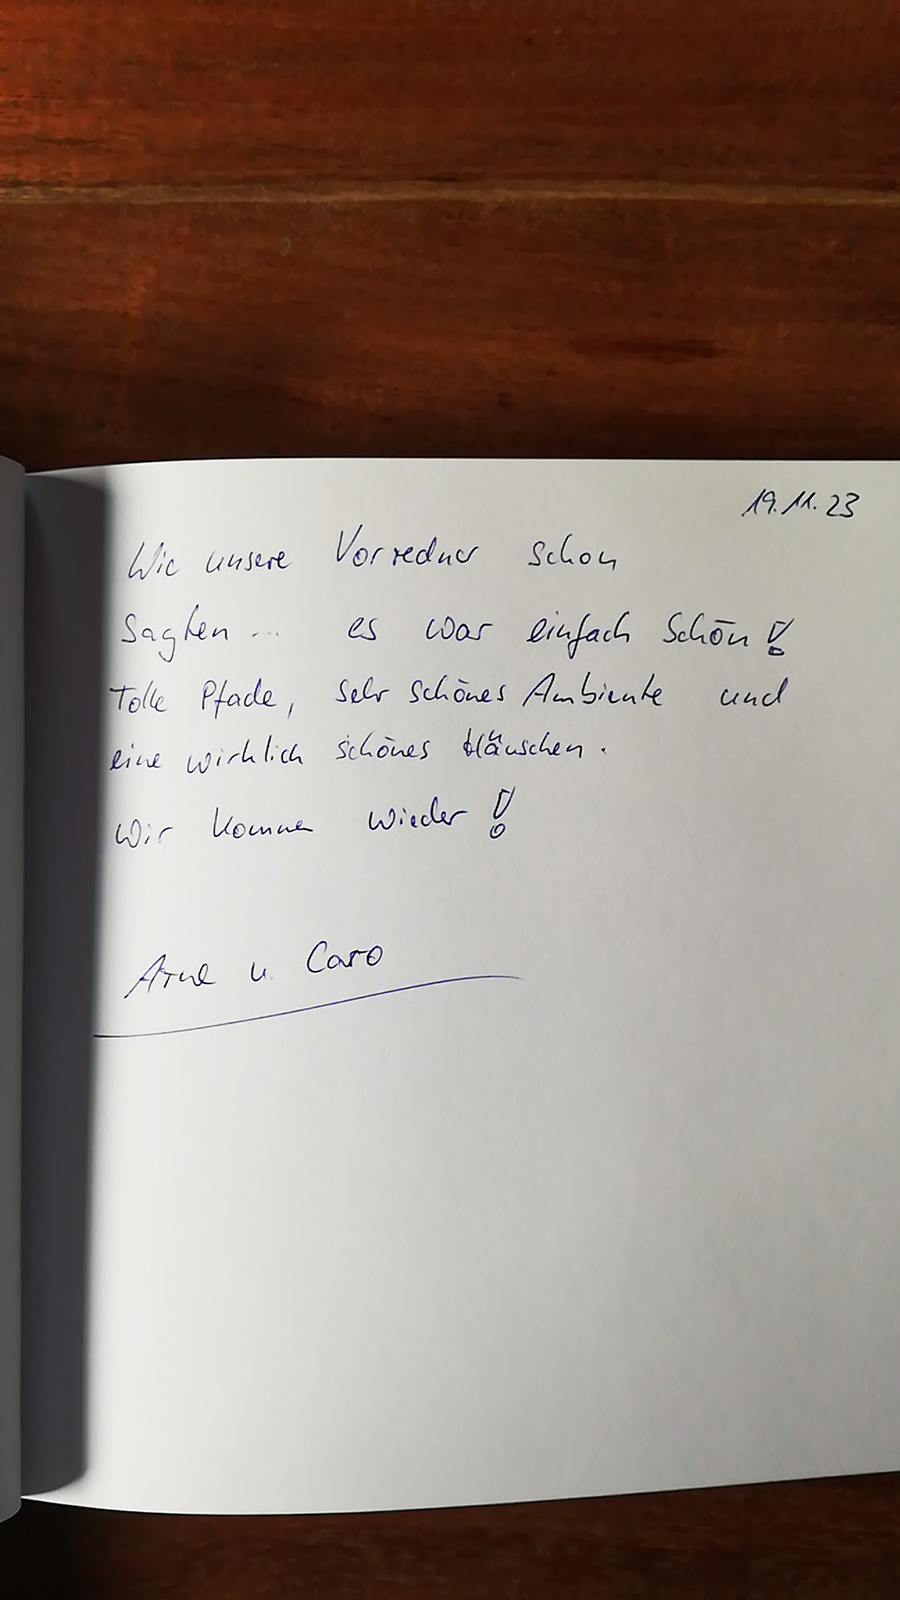 19.11.23
Wie unsere Vorredner schon
sagten... es war einfach schön!
Tolle Pfade, sehr schönes Ambiente und
eine wirklich schönes Häuschen.
Wir kommen wieder!
Arne u. Caro